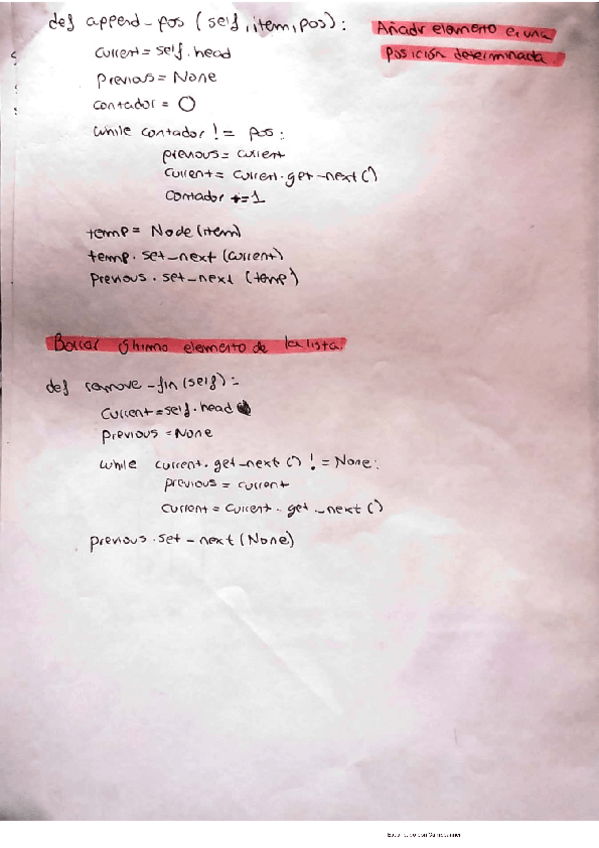 def append_pos (self, item, pos): Añadir elemento en una
posición determinada
current = self.head
previous = None
contador = 0
while contador != pos:
previous = current
current = current.get_next()
contador += 1
temp = Node(item)
temp.set_next(current)
previous.set_next(temp)
Borrar último elemento de la lista.
def remove_fin(self):
current = self.head
previous = None
while current.get_next() != None:
previous = current
current = current.get_next()
previous.set_next(None)